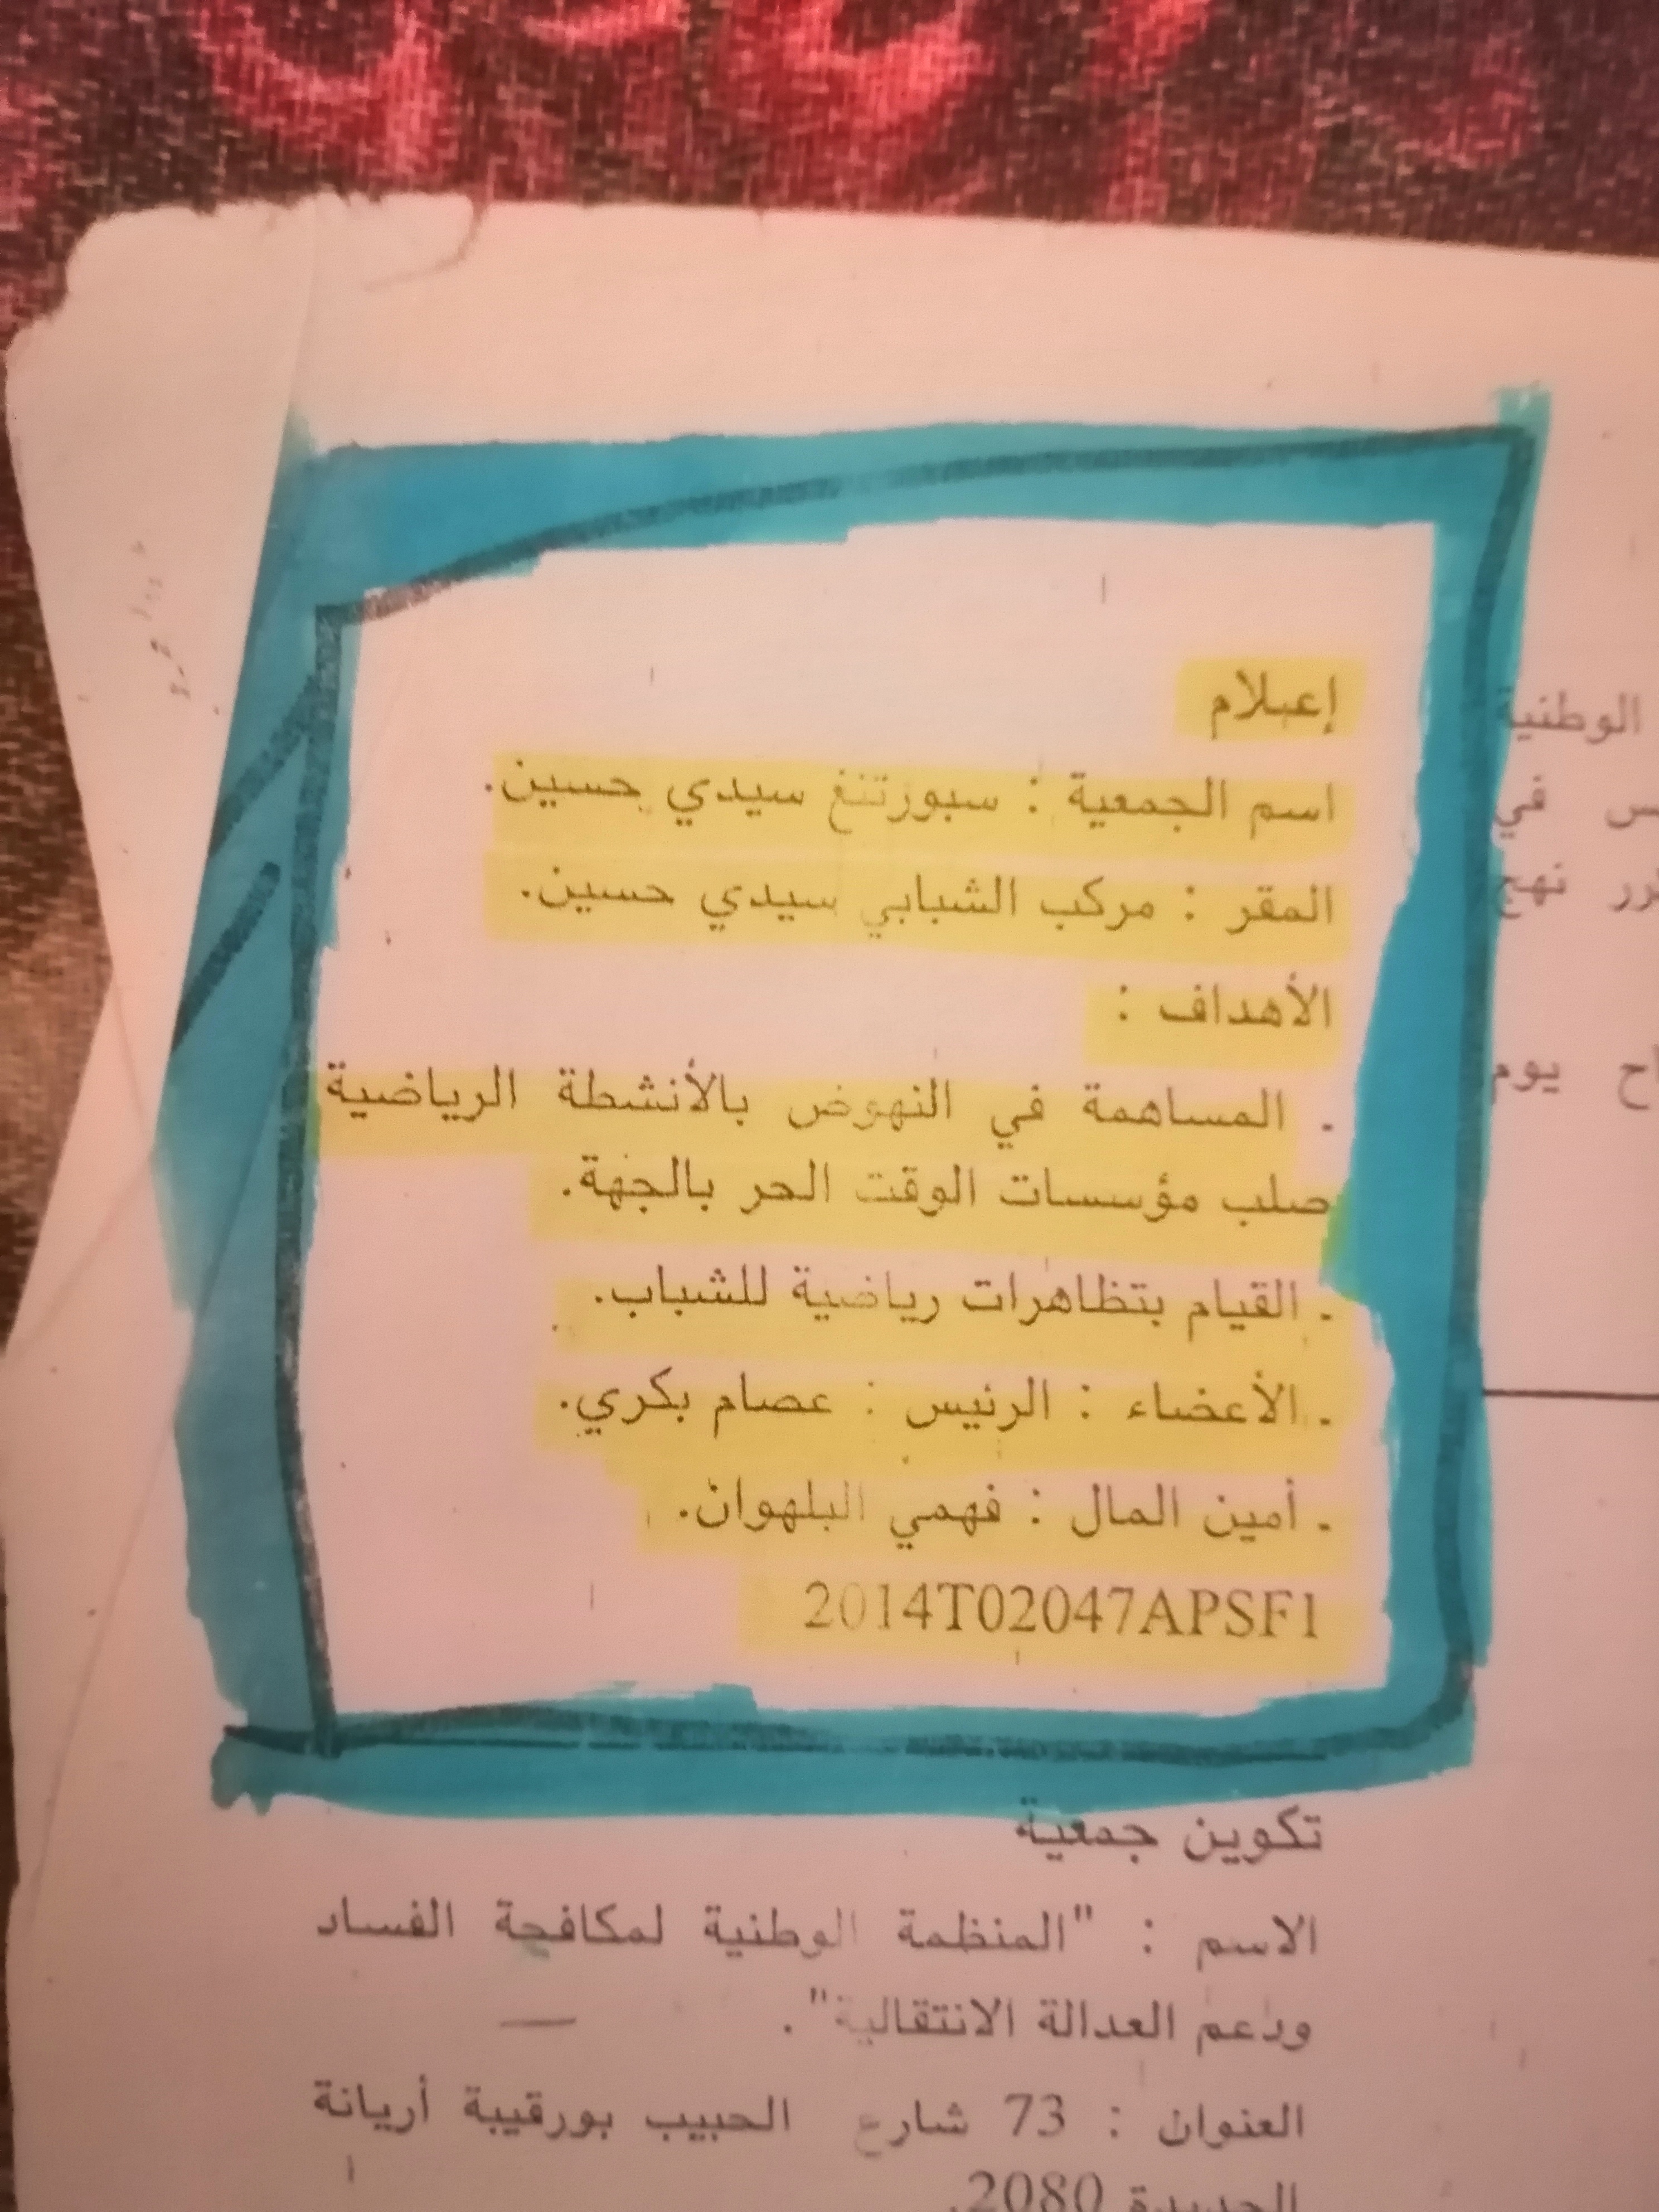 إعلام
اسم الجمعية : سبورتنغ سيدي حسين.
المقر : مركب الشبابي سيدي حسين.
الأهداف :
. المساهمة في النهوض بالأنشطة الرياضية
صلب مؤسسات الوقت الحر بالجهة.
. القيام بتظاهرات رياضية للشباب.
. الأعضاء : الرئيس : عصام بكري.
. أمين المال : فهمي البلهوان.
2014T02047APSF1
تكوين جمعية
الاسم : "المنظمة الوطنية لمكافحة الفساد
ودعم العدالة الانتقالية".
العنوان : 73 شارع الحبيب بورقيبة أريانة
الجديدة 2080.
الوطنية
في
نهج
يوم